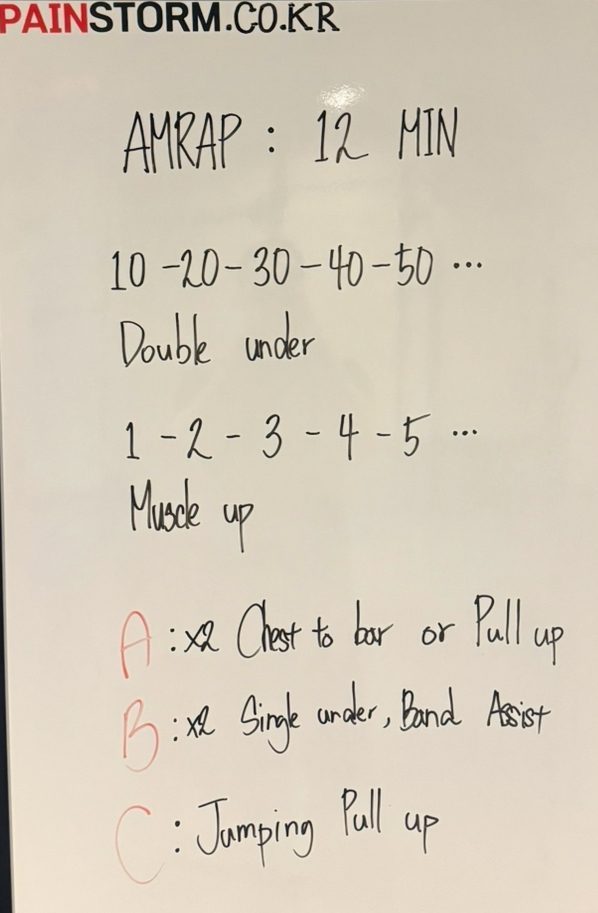 PAINSTORM.CO.KR
AMRAP : 12 MIN
10 - 20 - 30 - 40 - 50 ...
Double under
1 - 2 - 3 - 4 - 5 ...
Muscle up
A : x2 Chest to bar or Pull up
B : x2 Single under, Band Assist
C : Jumping Pull up